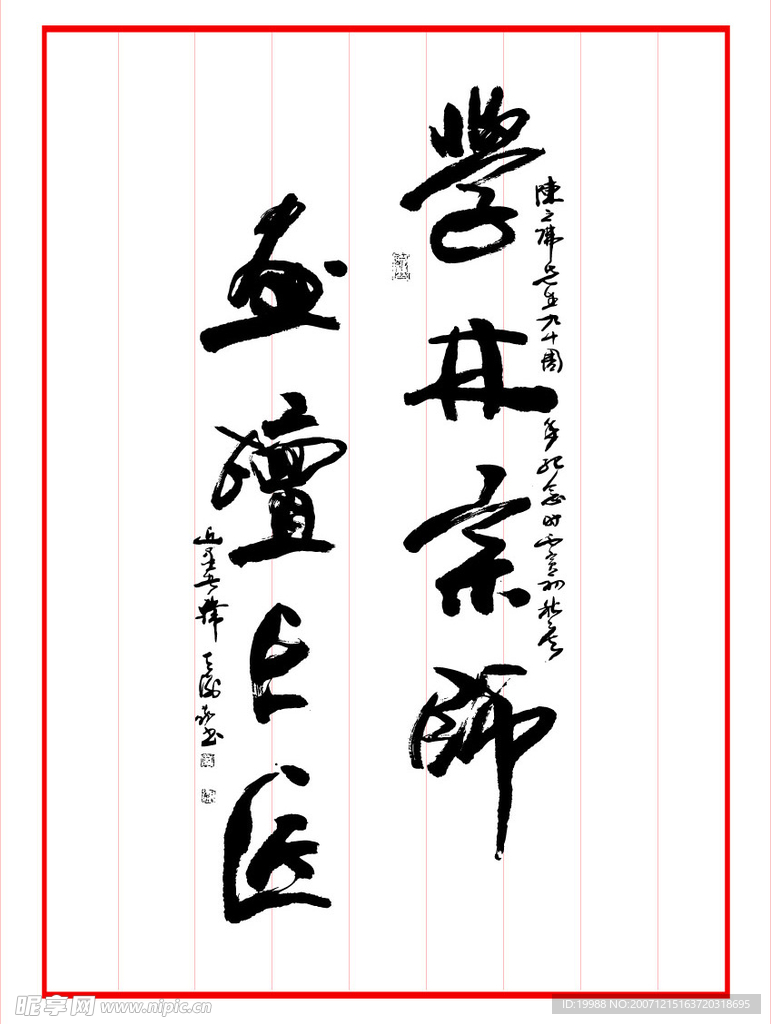 陳之佛先生九十周年紀念時丙寅初秋
學林宗師
畫壇巨匠
昵享网 www.nipic.cn
ID:19988 NO:20071215163720318695